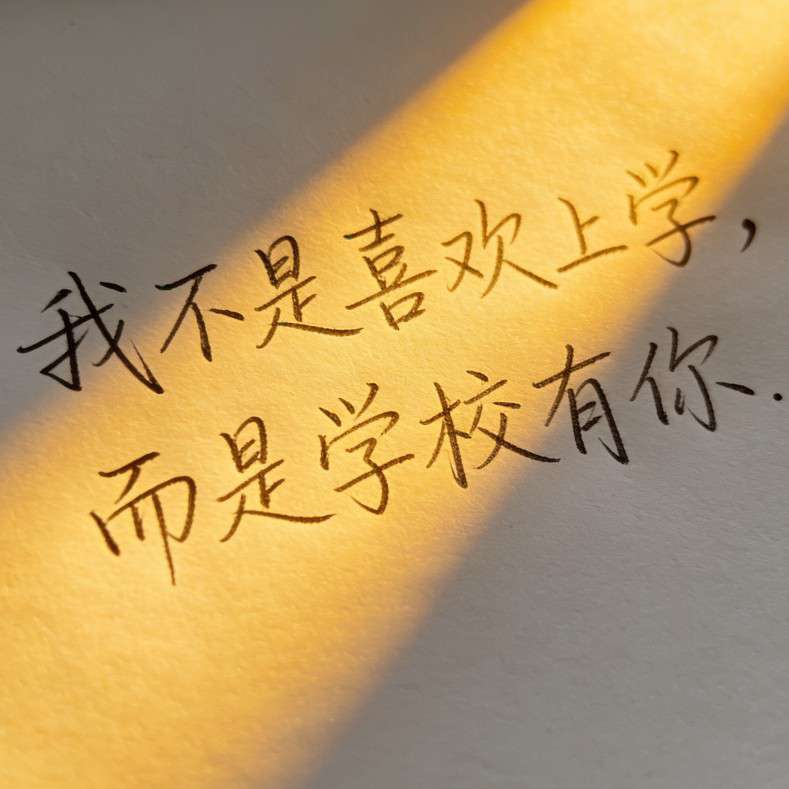 我不是喜欢上学，
而是学校有你.